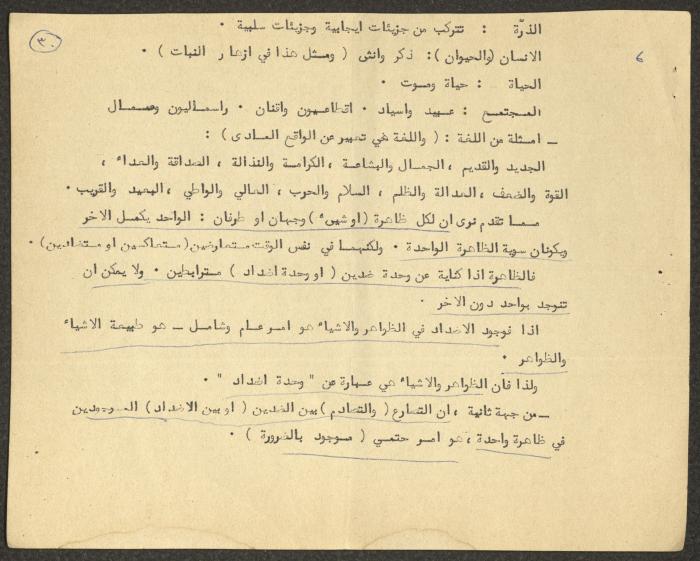 ٣٠
6
الذرّة : تتركب من جزيئات ايجابية وجزيئات سلبية ٠
الانسان (والحيوان): ذكر وانثى ( ومثل هذا في ازهار النبات ) ٠
الحياة : حياة وموت ٠
المجتمع : عبيد واسياد ٠ اقطاعيون واقنان ٠ راسماليون وعمال
ــ امثلة من اللغة : ( واللغة هي تعبير عن الواقع المادى ) :
الجديد والقديم ، الجمال والبشاعة ، الكرامة والنذالة ، الصداقة والعداء ،
القوة والضعف ، العدالة والظلم ، السلام والحرب ، العالي والواطي ، البعيد والقريب ٠
مما تقدم نرى ان لكل ظاهرة (او شيء) وجهان او طرفان : الواحد يكمل الاخر
ويكونان سوية الظاهرة الواحدة ٠ ولكنهما في نفس الوقت متعارضين (متعاكسين او متضادين) ٠
فالظاهرة اذا كناية عن وحدة ضدين ( او وحدة اضداد ) مترابطين ٠ ولا يمكن ان
تتوجد بواحد دون الاخر ٠
اذا فوجود الاضداد في الظواهر والاشياء هو امر عام وشامل ــ هو طبيعة الاشياء
والظواهر ٠
ولذا فان الظواهر والاشياء هي عبارة عن " وحدة اضداد " ٠
ــ من جهة ثانية ، ان التصارع ( والتصادم ) بين الضدين ( او بين الاضداد ) الموجودين
في ظاهرة واحدة ، هو امر حتمي ( موجود بالضرورة ) ٠